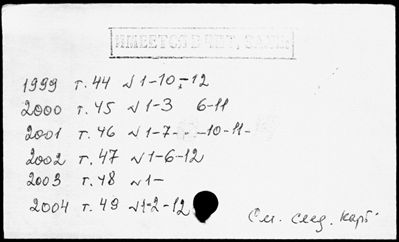 ИМЕЕТСЯ В ЧИТ. ЗАЛЕ
1999 т. 44 №1-10,-12
2000 т. 45 №1-3 6-11
2001 т. 46 №1-7- -10-11-
2002 т. 47 №1-6-12
2003 т. 48 №1-
2004 т. 49 №1-2-12
См. след. карт